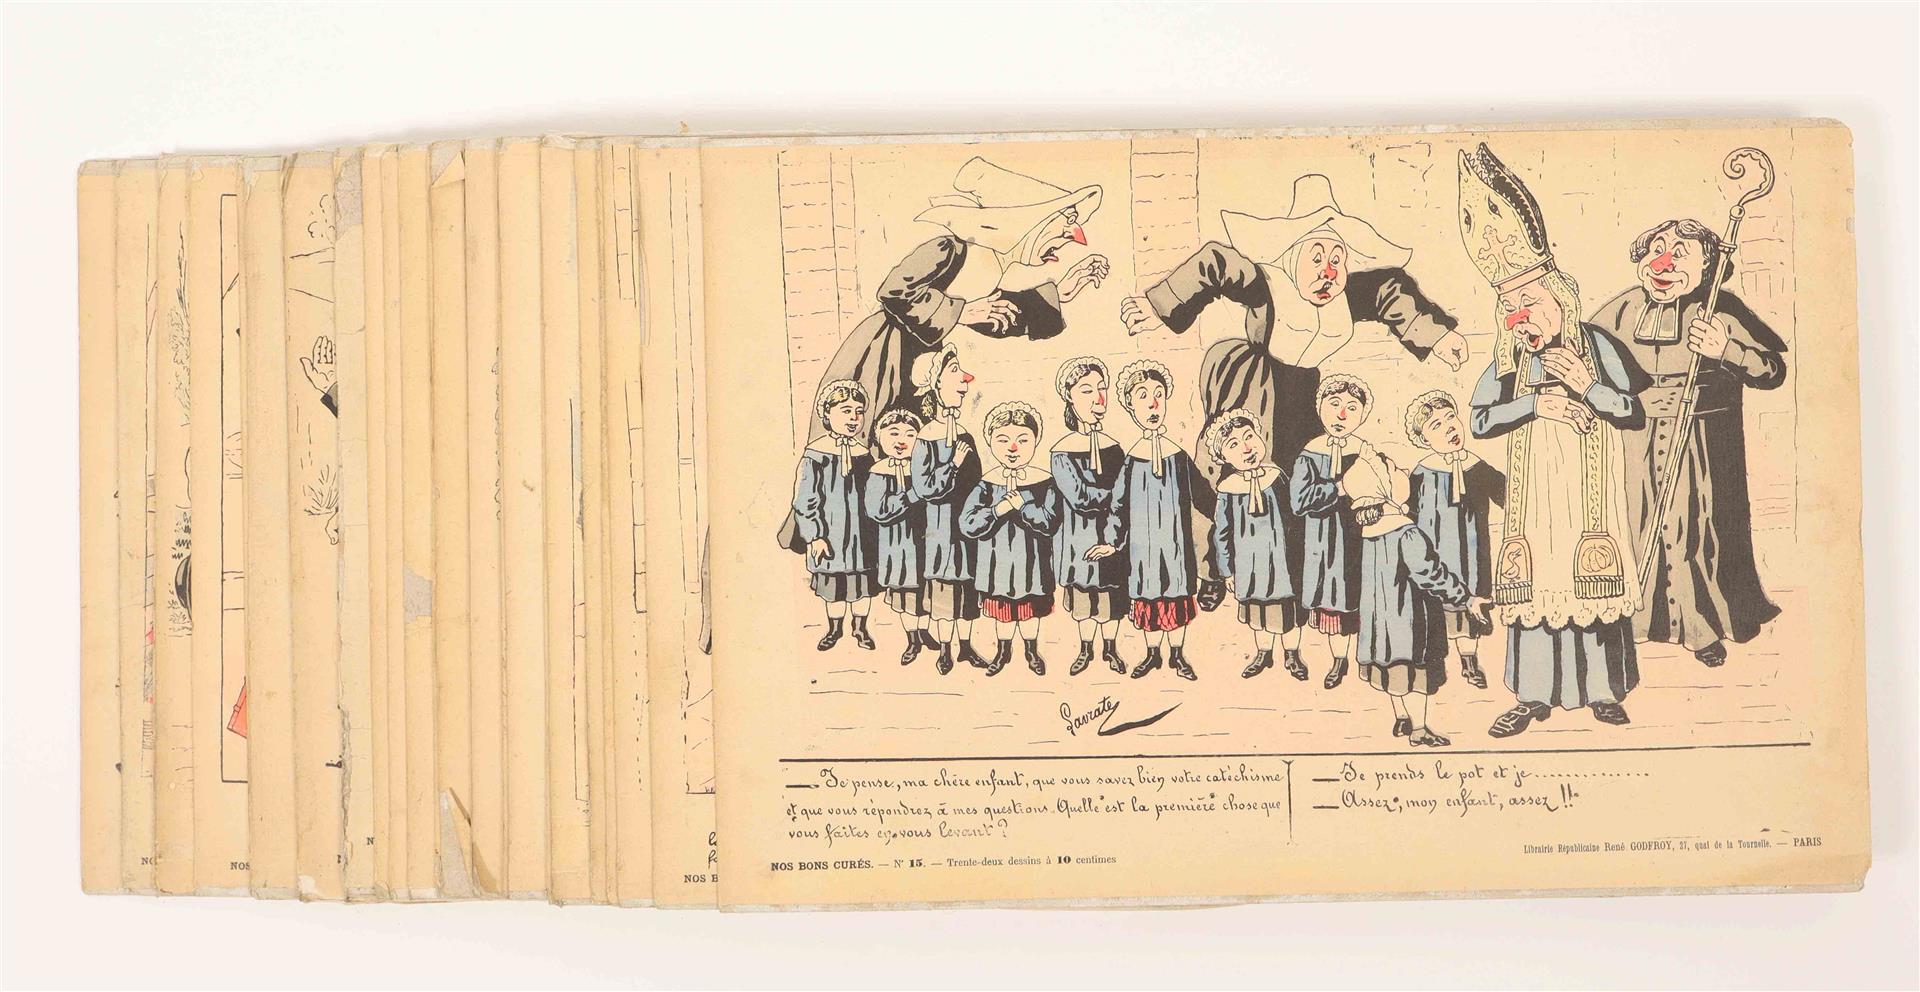 Lavrate
— Je pense, ma chère enfant, que vous savez bien votre catéchisme
et que vous répondrez à mes questions. Quelle est la première chose que
vous faites en vous levant ?
— Je prends le pot et je .............
— Assez, mon enfant, assez !!
NOS BONS CURÉS. — N° 15. — Trente-deux dessins à 10 centimes
Librairie Républicaine René GODFROY, 27, quai de la Tournelle. — PARIS
NOS B
NOS
N